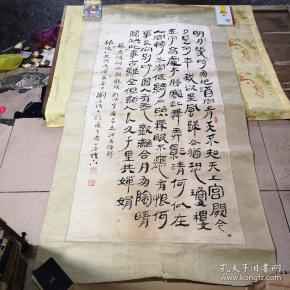 明月幾時有把酒問青天不知天上宮闕今
夕是何年我欲乘風歸去又恐瓊樓
玉宇高處不勝寒起舞弄清影何似在
人間轉朱閣低綺户照無眠不應有恨何
事長向别時圓人有悲歡離合月有陰晴
圓缺此事古難全但願人長久千里共嬋娟
蘇東坡詞水調歌頭
孔夫子旧书网